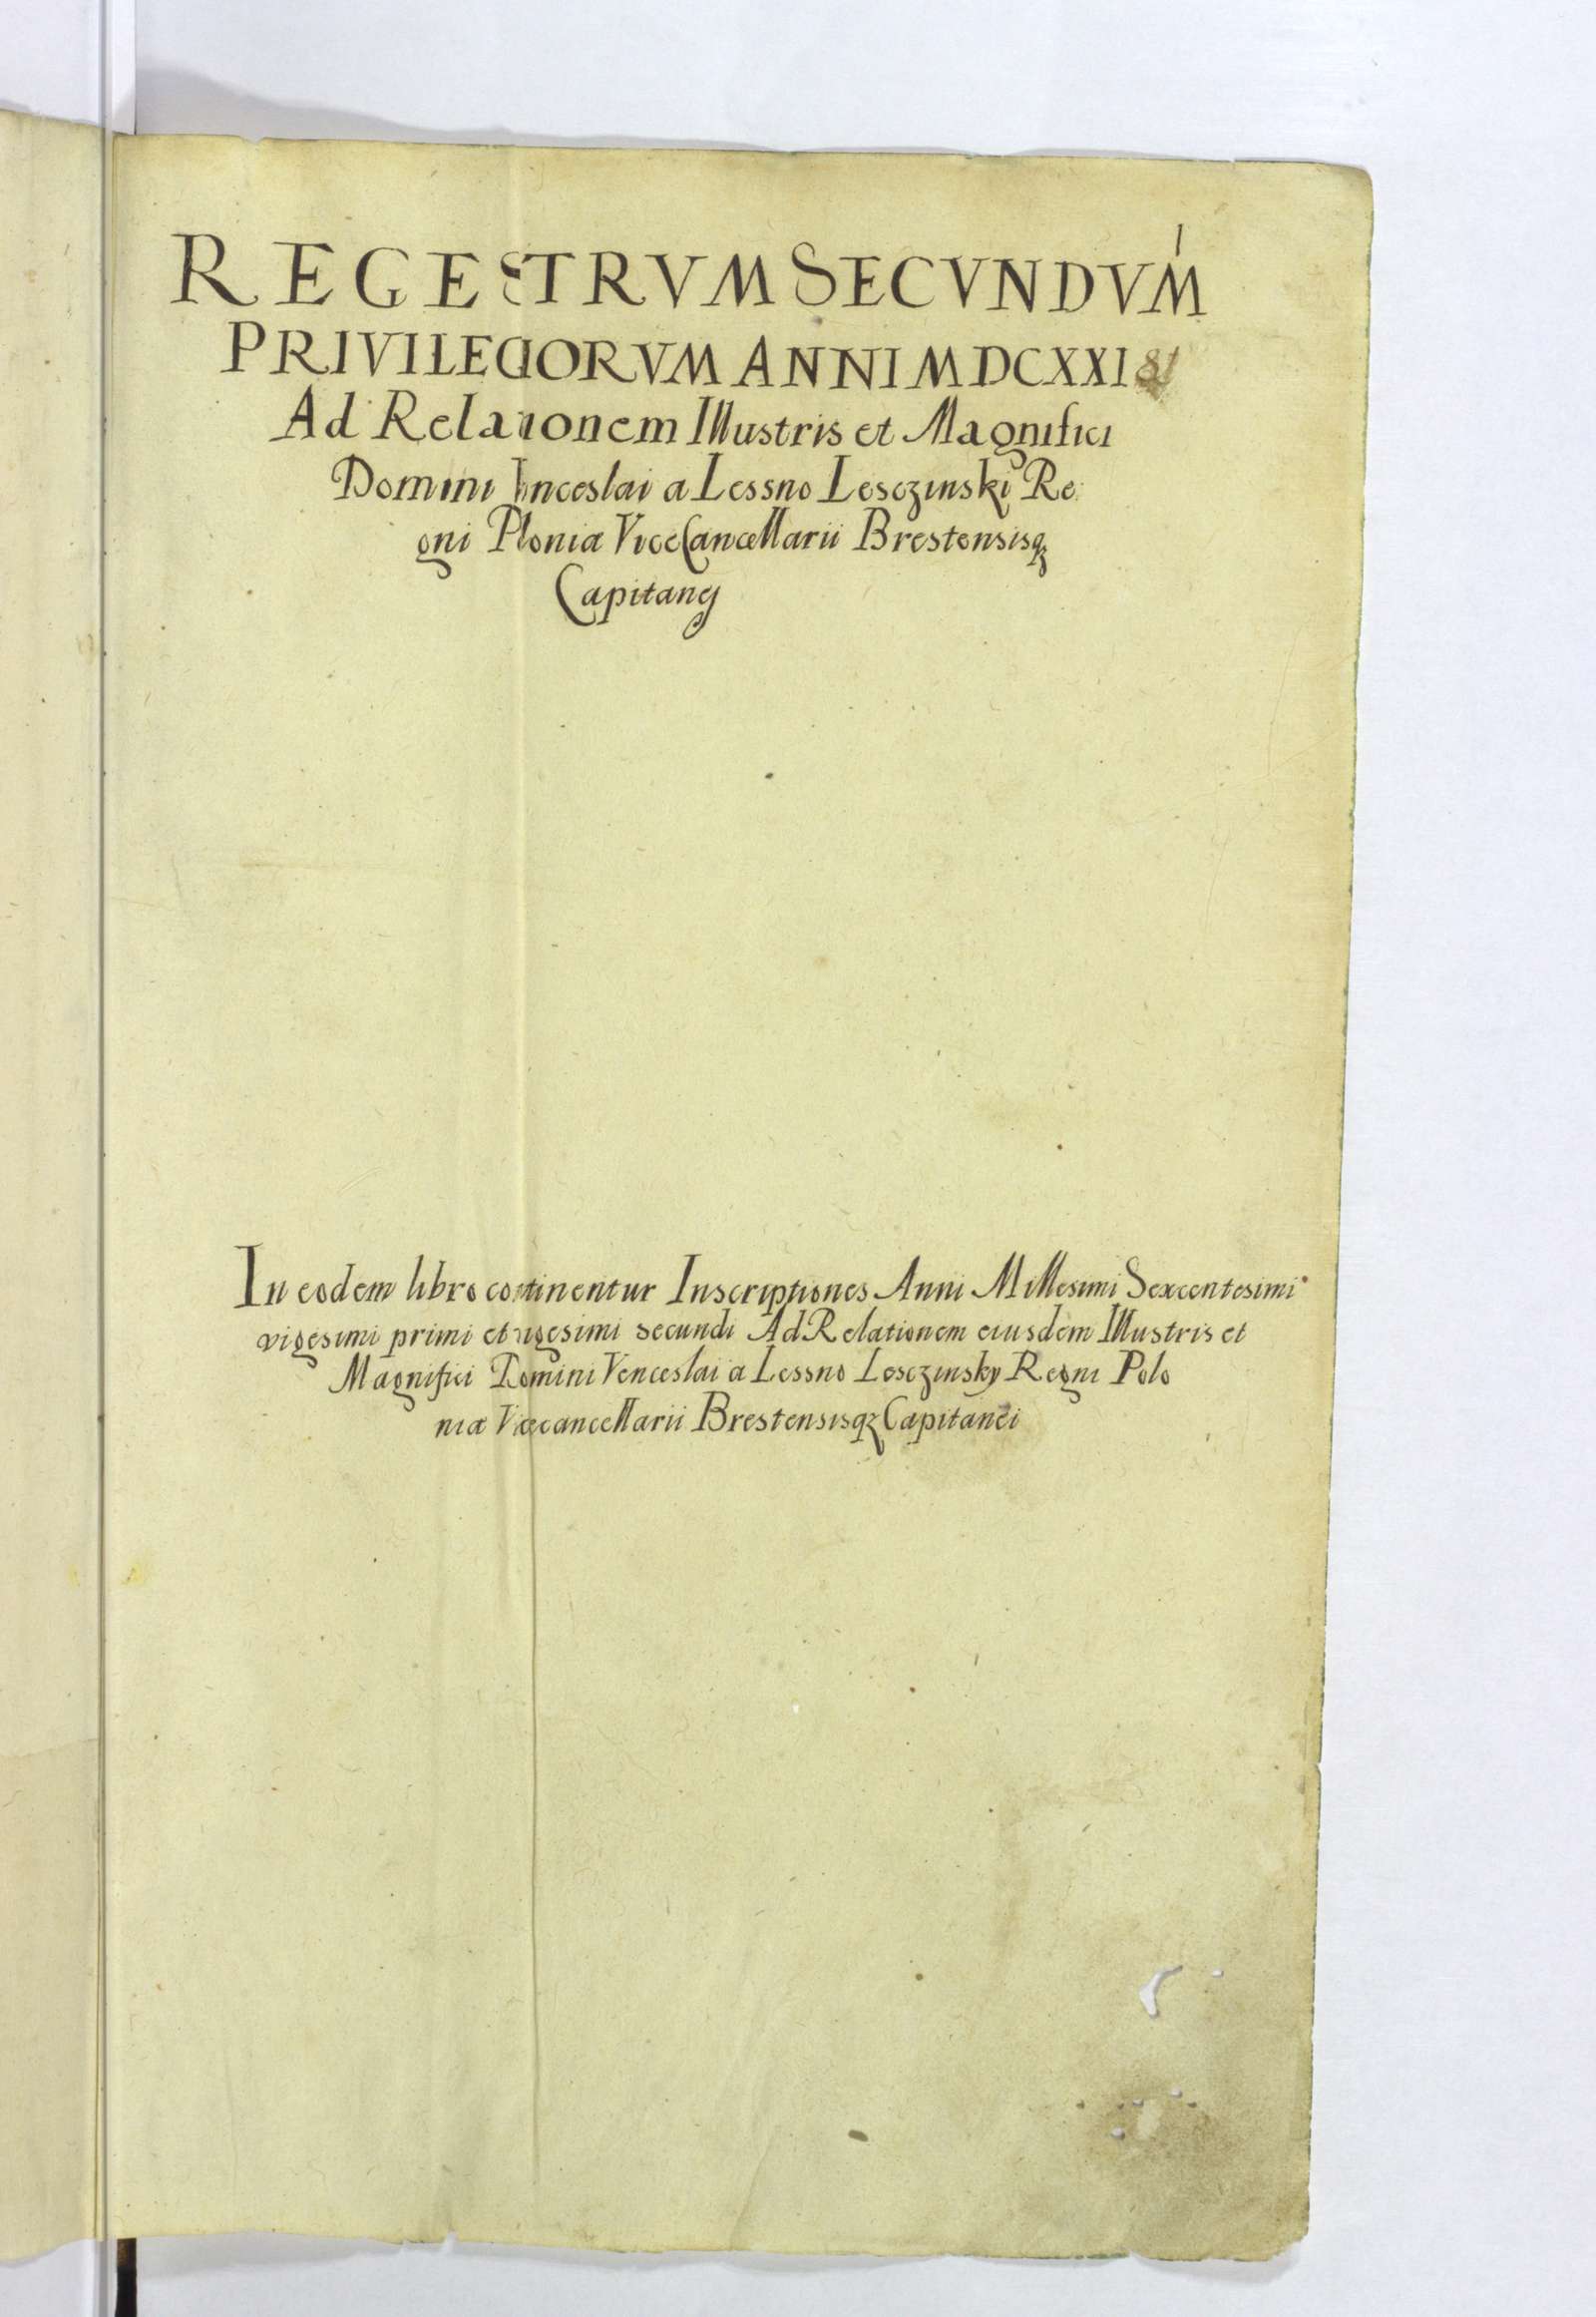 1
REGESTRVM SECVNDVM
PRIVILEGIORVM ANNI MDCXXI
Ad Relationem Illustris et Magnifici
Domini Venceslai a Lessno Lesczinski Re
gni Plonia ViceCancellarii Brestensisqꝫ
Capitanej
In eodem libro continentur Inscriptiones Anni Millesimi Sexcentesimi
vigesimi primi et vigesimi secundi Ad Relationem eiusdem Illustris et
Magnifici Domini Venceslai a Lessno Lesczinsky Regni Polo
niæ Vicecancellarii Brestensisqꝫ Capitanei